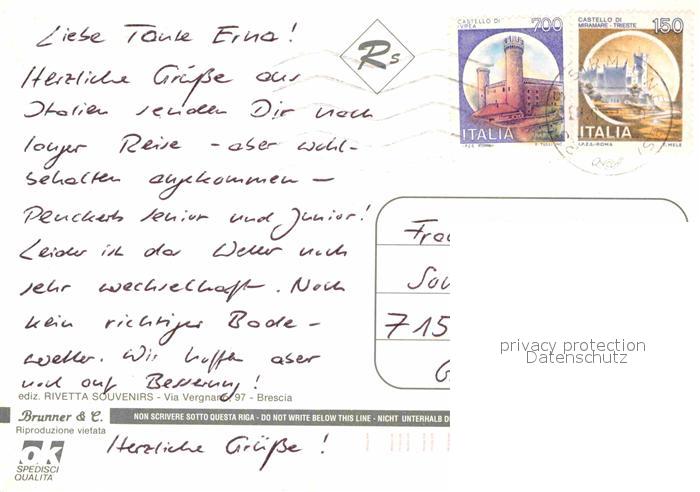 Liebe Tante Erna!
Herzliche Grüße aus
Italien senden Dir nach
langer Reise - aber wohl-
behalten angekommen -
Penckerts senior und Junior!
Leider ist das Wetter noch
sehr wechselhaft. Noch
kein richtiges Bade-
wetter. Wir hoffen aber
noch auf Besserung!
ediz. RIVETTA SOUVENIRS - Via Vergnano, 97 - Brescia
Brunner & C.
NON SCRIVERE SOTTO QUESTA RIGA - DO NOT WRITE BELOW THIS LINE - NICHT UNTERHALB D
Riproduzione vietata
ok
SPEDISCI
QUALITA'
Herzliche Grüße!
Rs
CASTELLO DI
IVREA
700
ITALIA
I.P.Z.S. ROMA
CASTELLO DI
MIRAMARE - TRIESTE
150
ITALIA
I.P.Z.S.-ROMA
F. MELE
Fra
715
privacy protection
Datenschutz